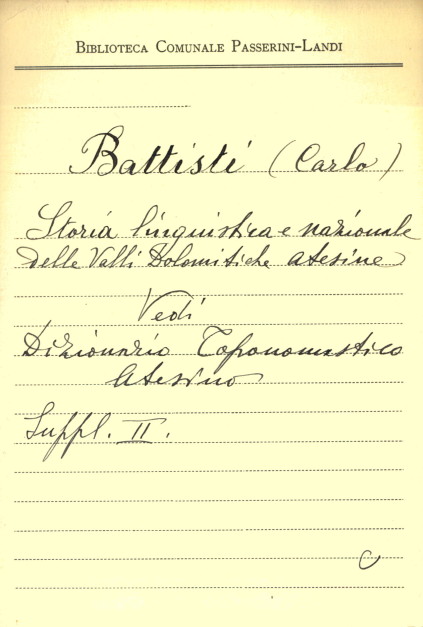 Biblioteca Comunale Passerini-Landi
Battisti (Carlo)
Storia linguistica e nazionale
delle Valli Dolomitiche atesine
Vedi
Dizionario Toponomastico
Atesino
Suppl. II.
C